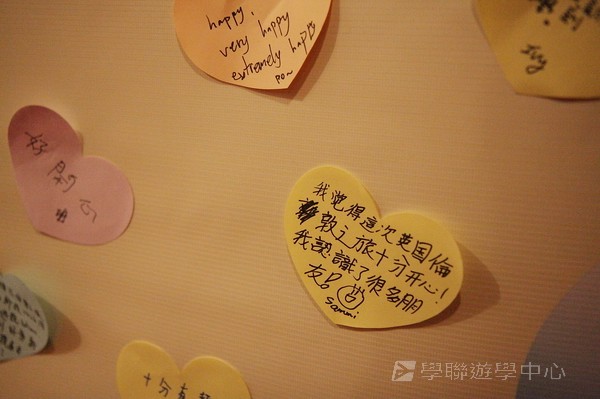 happy,
very happy
extremely happy
po~
Ivy
好開心
我覺得這次英国倫
敦之旅十分开心!
我認識了很多朋
友!
Sammi
十分有
學聯遊學中心